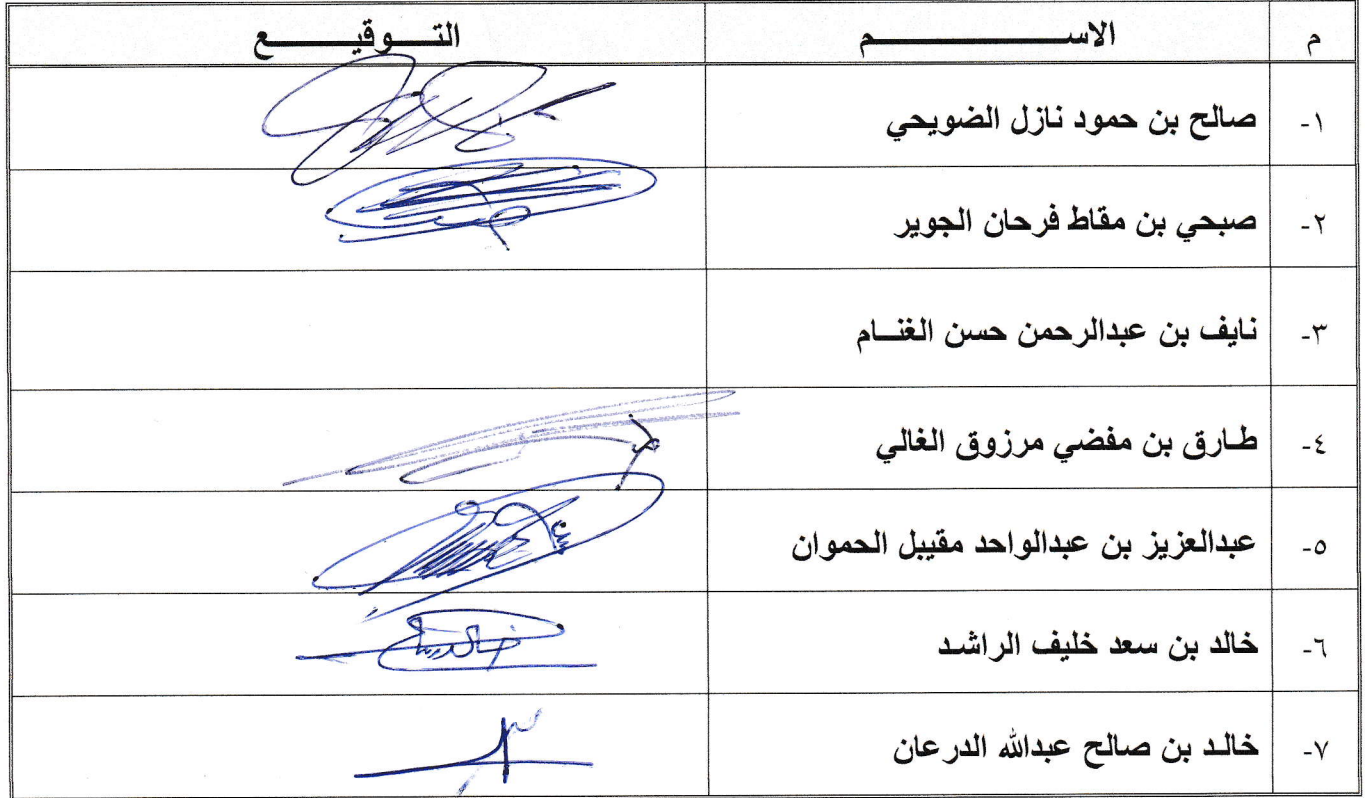 م الاســـــــــــــم التـــوقيـــــــع
١- صالح بن حمود نازل الضويحي
٢- صبحي بن مقاط فرحان الجوير
٣- نايف بن عبدالرحمن حسن الغنــام
٤- طـارق بن مفضي مرزوق الغالي
٥- عبدالعزيز بن عبدالواحد مقيبل الحموان
٦- خالد بن سعد خليف الراشد
٧- خالـد بن صالح عبدالله الدرعان